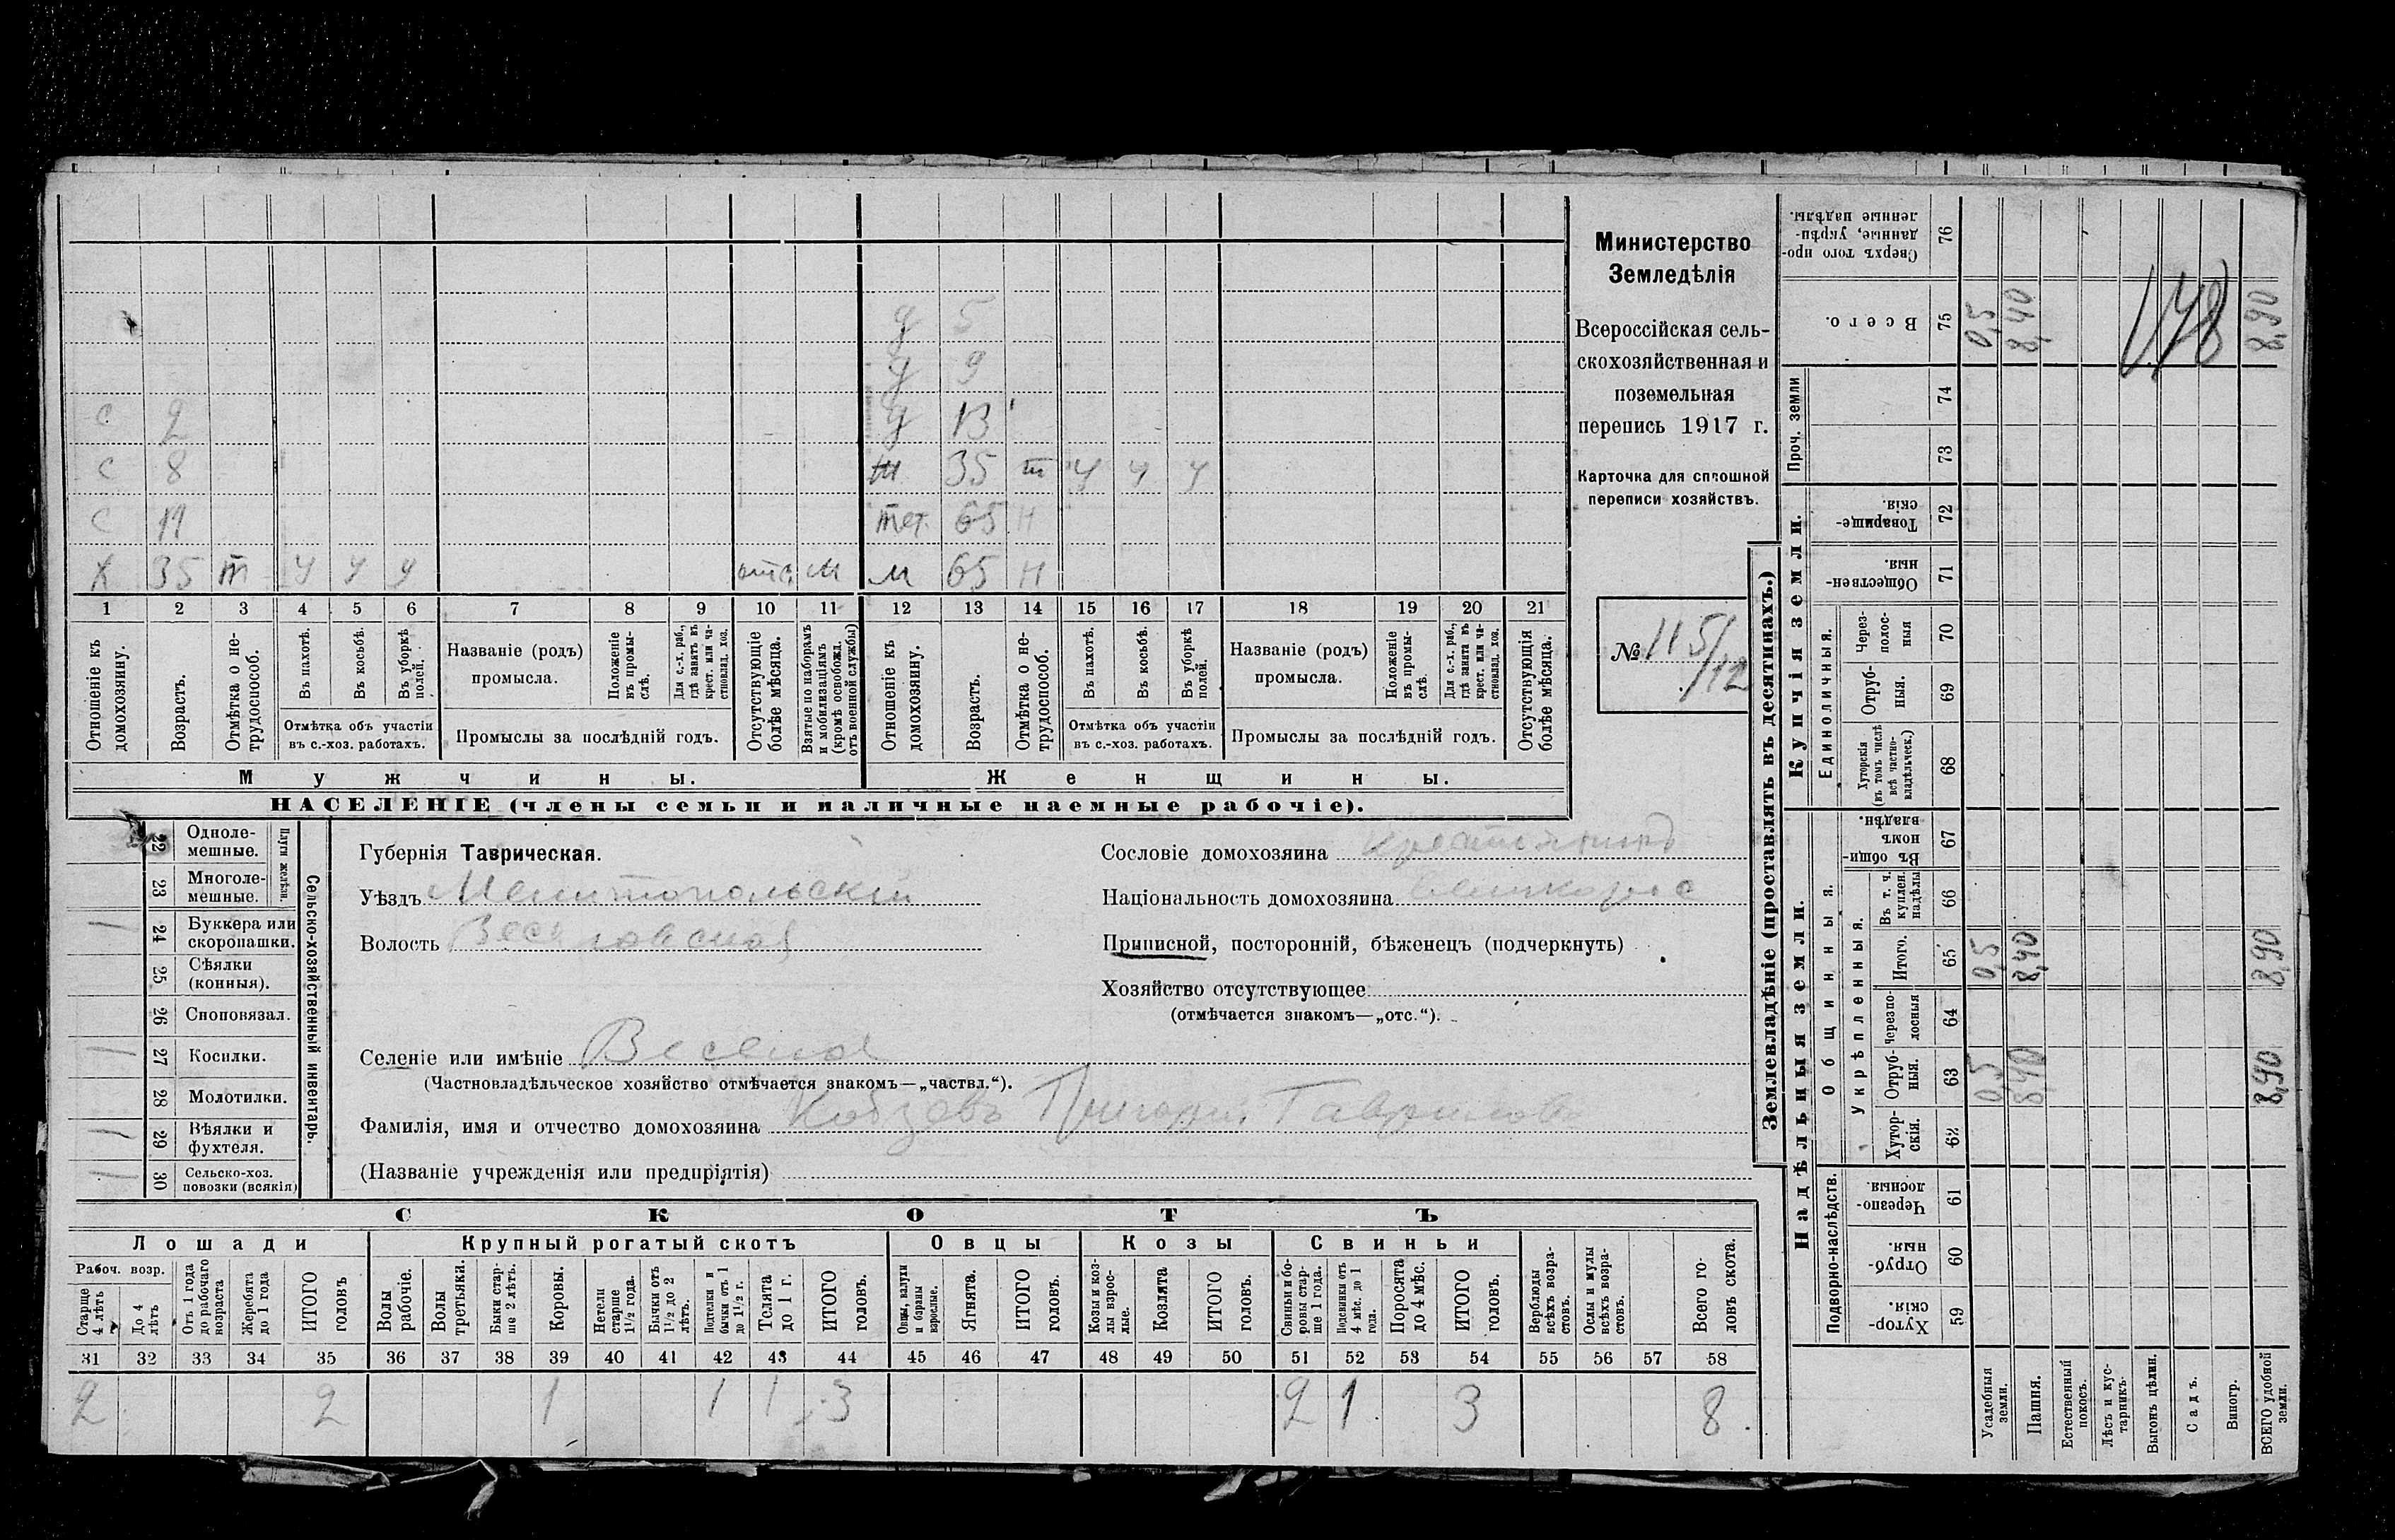 Министерство
Земледѣлія
Всероссійская сель-
скохозяйственная и
поземельная
перепись 1917 г.
Карточка для сплошной
переписи хозяйствъ.
№ 115/12
д 5
д 9
с 2 д 13
с 8 ж 35 т ч ч ч
с 11 тет. 65 н
х 35 т ч ч ч отс. м м 65 н
1 2 3 4 5 6 7 8 9 10 11 12 13 14 15 16 17 18 19 20 21
Отношеніе къ домохозяину.
Возрастъ.
Отмѣтка о не-трудоспособ.
Въ пахотѣ.
Въ косьбѣ.
Въ уборкѣ полей.
Отмѣтка объ участіи въ с.-хоз. работахъ.
Названіе (родъ) промысла.
Положеніе въ промы-слѣ.
Для с.-х. раб., гдѣ занятъ въ крест. или ча-стновлад. хоз.
Промыслы за послѣдній годъ.
Отсутствующіе болѣе мѣсяца.
Взятые по наборамъ и мобилизаціямъ (кромѣ освобожд. отъ военной службы)
Отношеніе къ домохозяину.
Возрастъ.
Отмѣтка о не-трудоспособ.
Въ пахотѣ.
Въ косьбѣ.
Въ уборкѣ полей.
Отмѣтка объ участіи въ с.-хоз. работахъ.
Названіе (родъ) промысла.
Положеніе въ промы-слѣ.
Для с.-х. раб., гдѣ занята въ крест. или ча-стновлад. хоз.
Промыслы за послѣдній годъ.
Отсутствующія болѣе мѣсяца.
Мужчины. Женщины.
НАСЕЛЕНІЕ (члены семьи и наличные наемные рабочіе).
Сельско-хозяйственный инвентарь.
Плуги желѣзн.
22 Одноле-мешные.
23 Многоле-мешные.
1 24 Буккера или скоропашки.
25 Сѣялки (конныя).
26 Сноповязал.
1 27 Косилки.
28 Молотилки.
1 29 Вѣялки и фухтеля.
1 30 Сельско-хоз. повозки (всякія)
Губернія Таврическая.
Уѣздъ Мелитопольскій
Волость Веселовская
Селеніе или имѣніе Веселое
(Частновладѣльческое хозяйство отмѣчается знакомъ—„частвл.“).
Фамилія, имя и отчество домохозяина Кобзевъ Григорій Гаврилов
(Названіе учрежденія или предпріятія)
Сословіе домохозяина крестьянинъ
Національность домохозяина великорос
Приписной, посторонній, бѣженецъ (подчеркнуть)
Хозяйство отсутствующее
(отмѣчается знакомъ—„отс.“).
СКОТЪ
Лошади Крупный рогатый скотъ Овцы Козы Свиньи
Рабоч. возр.
Старше 4 лѣтъ
До 4 лѣтъ
Отъ 1 года до рабочаго возраста
Жеребята до 1 года
ИТОГО головъ
Волы рабочіе.
Волы третьяки.
Быки стар-ше 2 лѣтъ.
Коровы.
Нетели старше 1½ года.
Бычки отъ 1½ до 2 лѣтъ.
Подтелки и бычки отъ 1 до 1½ г.
Телята до 1 г.
ИТОГО головъ.
Овцы, валухи и бараны взрослые.
Ягнята.
ИТОГО головъ.
Козы и коз-лы взрос-лые.
Козлята
ИТОГО головъ.
Свиньи и бо-ровы стар-ше 1 года.
Подсвинки отъ 4 мѣс. до 1 года.
Поросята до 4 мѣс.
ИТОГО головъ.
Верблюды всѣхъ возра-стовъ.
Ослы и мулы всѣхъ возра-стовъ.
Всего го-ловъ скота.
31 32 33 34 35 36 37 38 39 40 41 42 43 44 45 46 47 48 49 50 51 52 53 54 55 56 57 58
2 2 1 1 1 3 2 1 3 8
Землевладѣніе (проставлять въ десятинахъ.)
Купчія земли.
Надѣльныя земли.
Сверхъ того про-данные, укрѣп-ленные надѣлы. 76
Всего. 75
Проч. земли
74
73
Товарище-скія. 72
Обществен-ныя. 71
Единоличныя.
Через-полос-ныя 70
Отруб-ныя. 69
Хуторскія (въ томъ числѣ всѣ частно-владѣльческ.) 68
Общинныя.
Въ общи-номъ владѣн. 67
Укрѣпленныя.
Въ т. ч. куплен. надѣлы 66
Итого. 65
Черезпо-лосныя 64
Отруб-ныя. 63
Хутор-скія. 62
Подворно-наслѣдств.
Черезпо-лосныя. 61
Отруб-ныя. 60
Хутор-скія. 59
Усадебныя земли.
Пашня.
Естественный покосъ.
Лѣсъ и кус-тарникъ.
Выгонъ цѣлин.
Садъ.
Виногр.
ВСЕГО удобной земли.
0,5 8,40 8,90
0,5 8,40 8,90
0,5 8,40 8,90